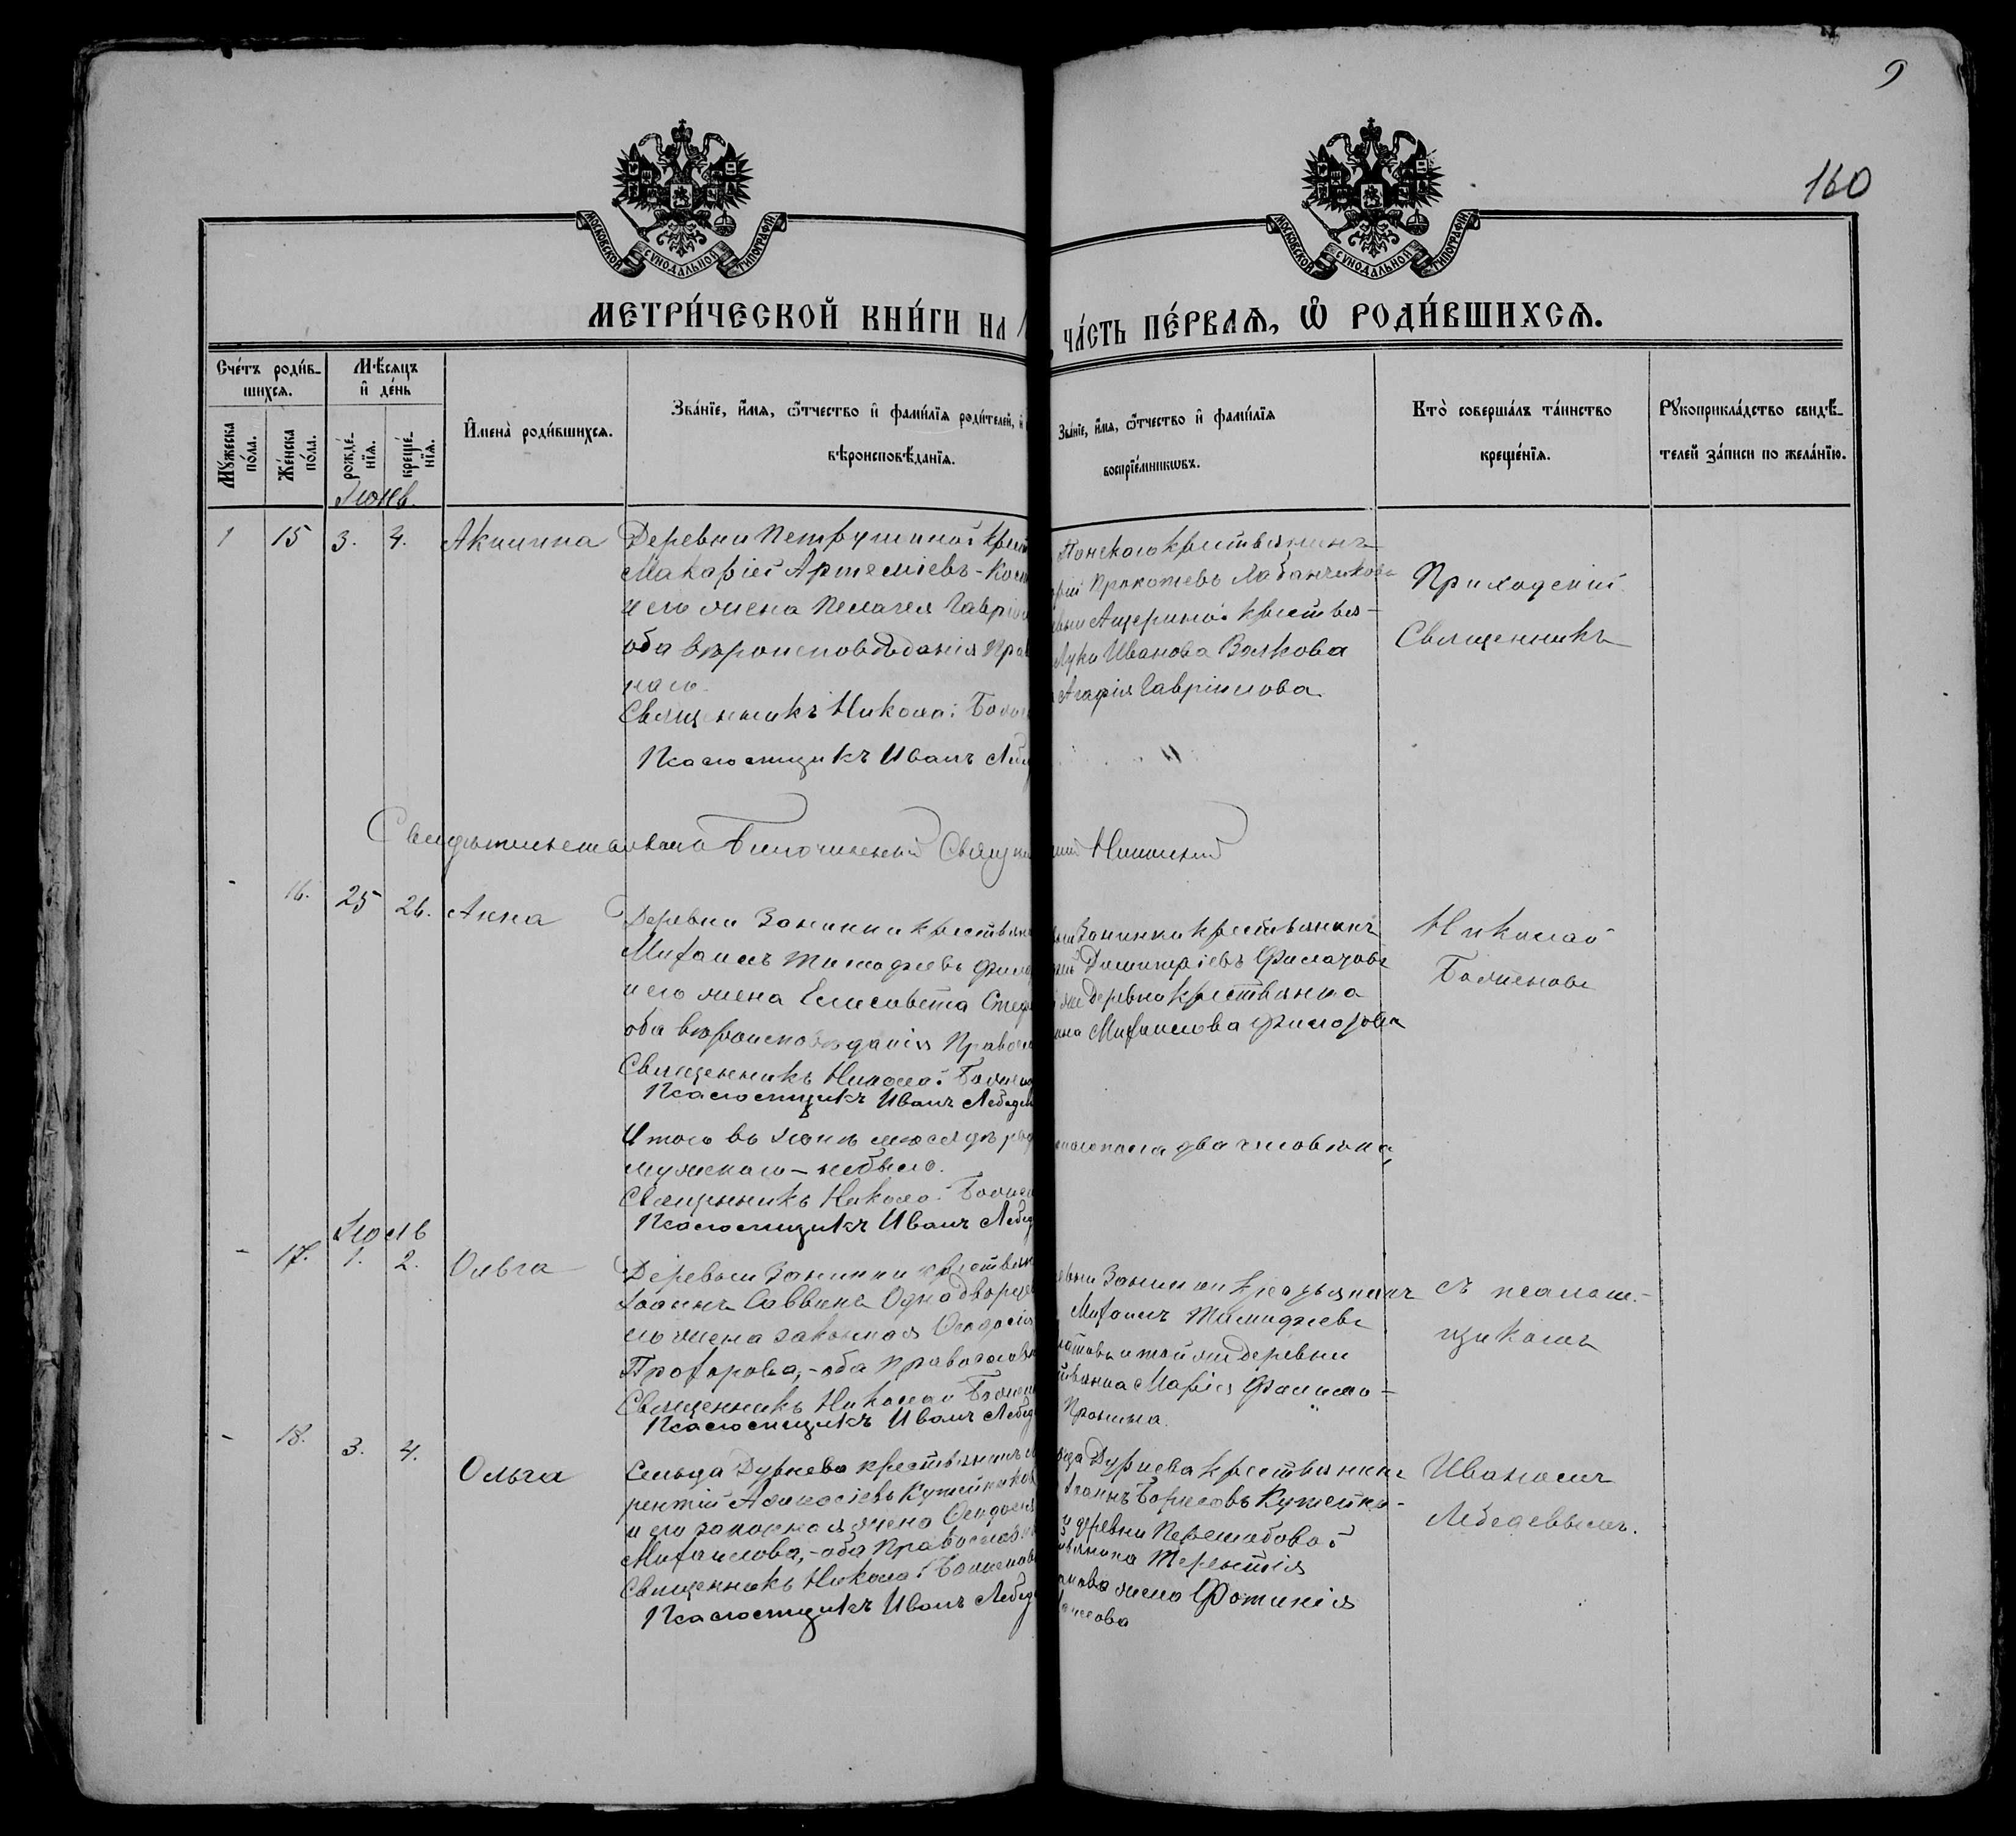 9
160
МОСКОВСКОЙ СѴНОДАЛЬНОЙ ТИПОГРАФІИ
МОСКОВСКОЙ СѴНОДАЛЬНОЙ ТИПОГРАФІИ
МЕТРИ́ЧЕСКОЙ КНИ́ГИ НА
ЧА́СТЬ ПЕ́РВАѦ, Ѡ҆ РОДИ́ВШИХСѦ.
Сче́тъ роди́в-
шихсѧ.
Мꙋ́жеска по́ла.
Же́нска по́ла.
Мѣ́сяцъ
и҆ де́нь
рожде́-
нїѧ.
креще́-
нїѧ.
И҆мена̀ роди́вшихсѧ.
Зва́нїе, и҆́мѧ, ѻ҆́тчество и҆ фами́лїѧ роди́телей, и҆
вѣроисповѣ́данїѧ.
Зва́нїе, и҆́мѧ, ѻ҆́тчество и҆ фами́лїѧ
воспрїе́мникѡвъ.
Кто̀ соверша́лъ та́инство
креще́нїѧ.
Рꙋкоприкла́дство свидѣ́-
телей за́писи по жела́нїю.
Іюнь.
1 15 3. 4. Акилина
Деревни Петрушиной крест
Макарій Артеміевъ-Кос
и его жена Пелагея Гаврі
оба вѣроисповѣданія Пра
наго.
Священникъ Николай Бож
Псаломщикъ Иванъ Лебе
крестьянинъ
Прокопіевъ Лабанчиковъ
Ащериной крестья-
Луки Иванова Волкова
Агафія Гавріилова.
Приходскій
Священникъ
Свидѣтельствовалъ Благочинный Свящ
16. 25 26. Анна
Деревни Занинки крестьян
Михаилъ Тимофеевъ Фил
и его жена Елисавета Сте
оба вѣроисповѣданія Правос
Священникъ Николай Боже
Псаломщикъ Иванъ Лебеде
Занинки крестьянинъ
Димитріевъ Филатовъ
же деревни крестьянка
Михаилова Филатова
Николай
Боженовъ
Итого въ Іюнѣ мѣсяцѣ ро
мужскаго-небыло.
Священникъ Николай Божен
Псаломщикъ Иванъ Лебед
пола два человѣка,
Іюль
- 17. 1. 2. Ольга
Деревни Занинки крестьян
Іоаннъ Саввинъ Однодворце
го жена законная Ѳеодосія
Прохорова,-оба православн
Священникъ Николай Божен
Псаломщикъ Иванъ Лебед
Занинки крестьянинъ
Михаилъ Тимофеевъ
и той же деревни
Марія Филипо-
Пронина.
съ псалом-
щикомъ
- 18. 3. 4. Ольга
Сельца Дурнева крестьянинъ
рентій Аѳанасіевъ Кутейников
и его законная жена Ѳеодосія
Михаилова,-оба Православн
Священникъ Николай Боженов
Псаломщикъ Иванъ Лебед
Дурнева крестьянинъ
Іоаннъ Борисовъ Кутейни-
и деревни
Терентія
жена Фотинія
Иваномъ
Лебедевымъ.